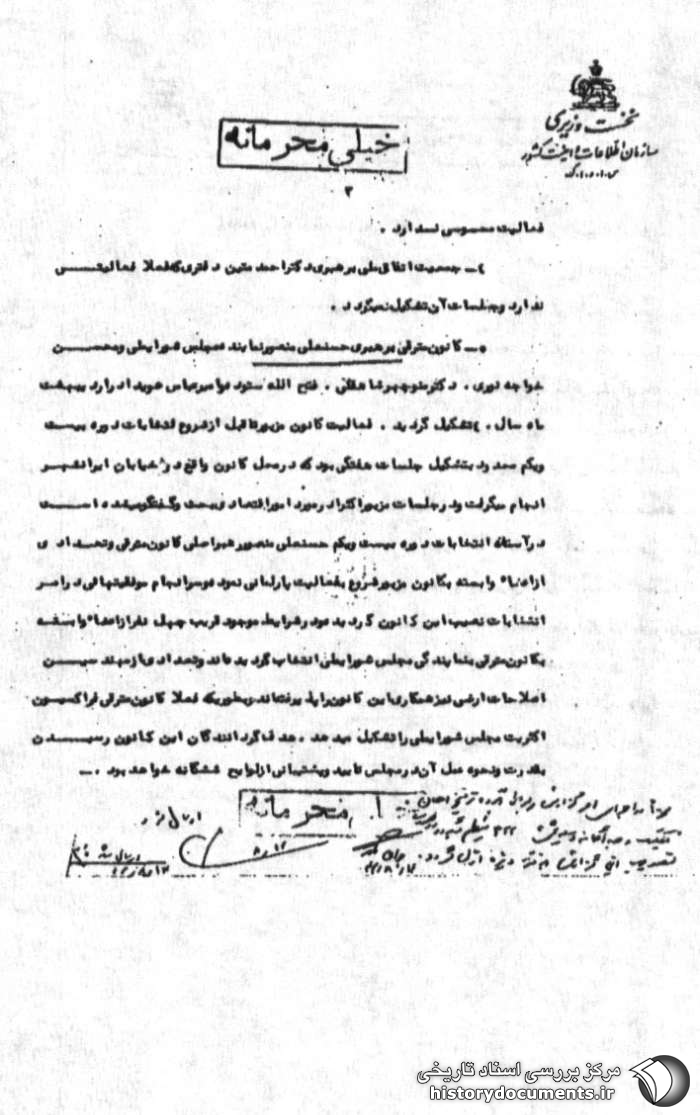 نخست وزیری
سازمان اطلاعات و امنیت کشور
س.ا.و.ا.ک
خیلی محرمانه
۲
فعالیت محسوسی ندارد .
۴ــ جمعیت اتفاق ملی برهبری دکتر احمد متین دفتری که فعلا فعالیتــــی
ندارد و جلسات آن تشکیل نمیگردد .
۵ــ کانون مترقی برهبری حسنعلی منصور نماینده مجلس شورایملی و محســـن
خواجه نوری . دکتر منوچهر شاهقلی . فتح الله ستوده و امیرعباس هویدا در اردیبهشت
ماه سال . ۴ تشکیل گردید . فعالیت کانون مزبور تا قبل از شروع انتخابات دوره بیست
ویکم محدود بتشکیل جلسات هفتگی بود که در محل کانون واقع در خیابان ایرانشهر
انجام میگرفت و در جلسات مزبور اکثرا در مورد امور اقتصادی بحث و گفتگو میشده اســت
در آستانه انتخابات دوره بیست ویکم حسنعلی منصور عضو اصلی کانون مترقی و تعـدادی
از اعضاء وابسته بکانون مزبور شروع بفعالیت پارلمانی نمود و سرانجام موفقیتهائی در امر
انتخابات نصیب این کانون گردید و در شرایط موجود قریب چهل نفر از اعضاء وابسته
بکانون مترقی بنمایندگی مجلس شورایملی انتخاب گردیده‌اند و تعدادی از مهندسیــن
اصلاحات ارضی نیز همکاری این کانون را پذیرفته‌اند و بطوریکه فعلا کانون مترقی فراکسیون
اکثریت مجلس شورایملی را تشکیل میدهد . هدف گردانندگان این کانون رسیـــدن
بقدرت و نحوه عمل آن در مجلس تایید و پشتیبانی از لوایح ششگانه خواهد بود . ــ
محرمانه
ارسال شد
مرکز بررسی اسناد تاریخی
historydocuments.ir